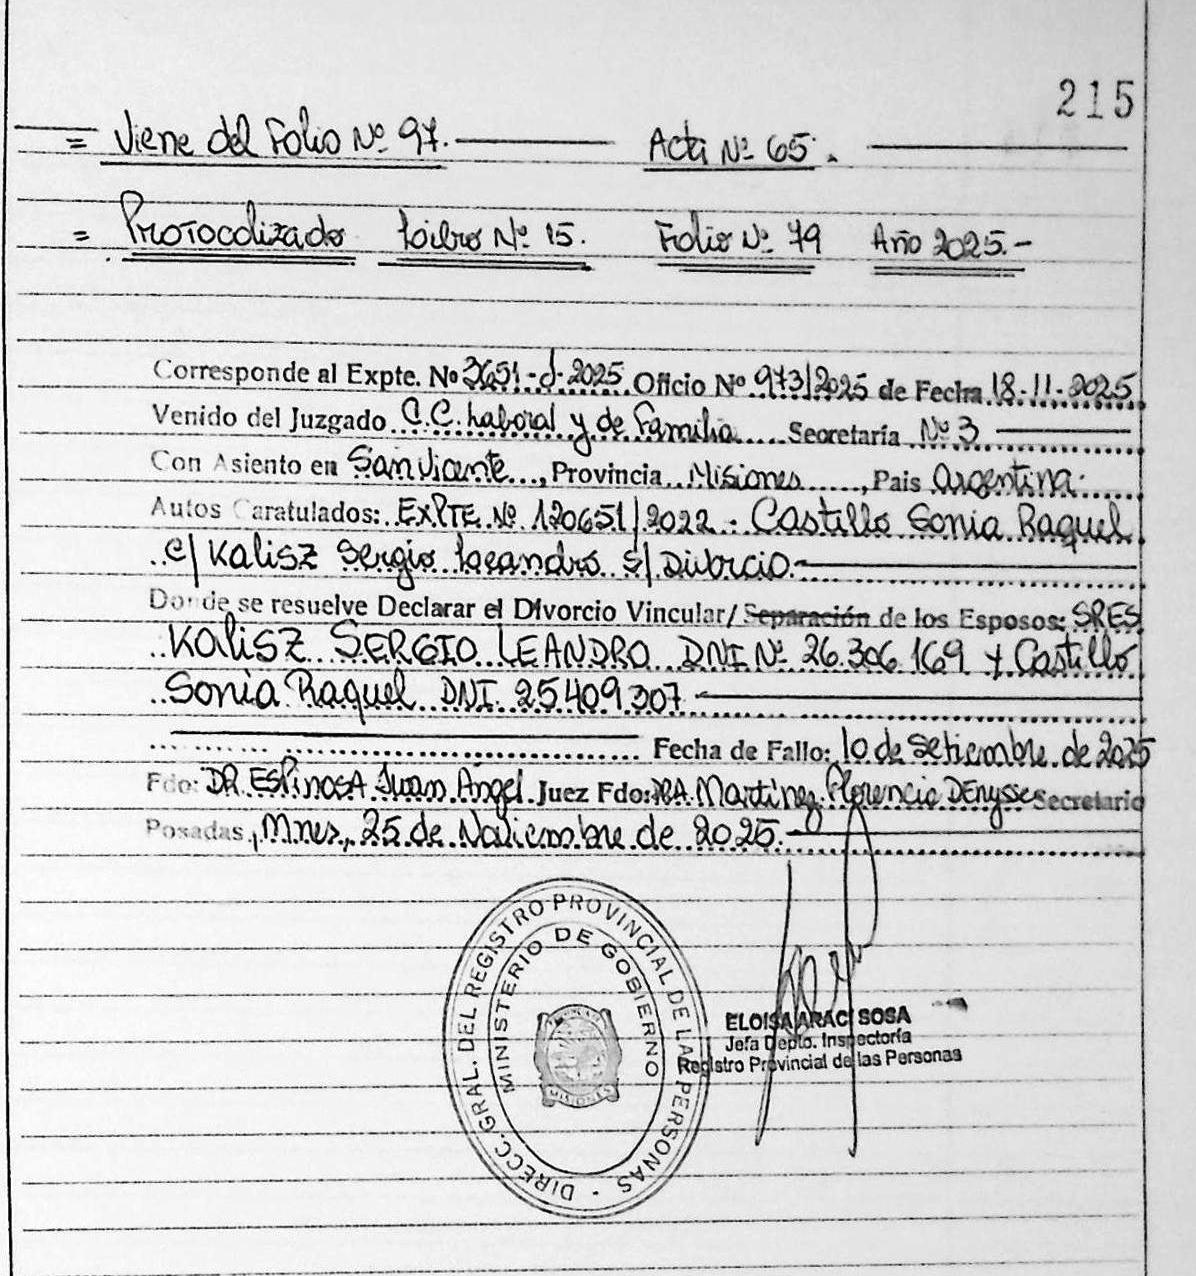 215
= Viene del Folio Nº 97. Acta Nº 65.
= Protocolizado Libro Nº 15. Folio Nº 79 Año 2025.-
Corresponde al Expte. Nº 3651-d-2025 Oficio Nº 973/2025 de Fecha 18-11-2025
Venido del Juzgado C.C. Laboral y de Familia Secretaría Nº 3
Con Asiento en San Vicente, Provincia Misiones, Pais Argentina.
Autos Caratulados: EXPTE. Nº 120651/2022 - Castillo Sonia Raquel
c/ Kalisz Sergio Leandro s/ Divorcio.-
Donde se resuelve Declarar el Divorcio Vincular/ Separación de los Esposos: SRES
KALISZ SERGIO LEANDRO DNI Nº 26.306.169 y Castillo
Sonia Raquel DNI. 25409.307-
Fecha de Fallo: 10 de Setiembre de 2025
Fdo: DR. ESPINOSA Juan Angel Juez Fdo: DRA. Martinez Florencia DEnysse Secretario
Posadas, Mnes, 25 de Noviembre de 2025.-
DIRECC. GRAL. DEL REGISTRO PROVINCIAL DE LAS PERSONAS -
MINISTERIO DE GOBIERNO
MISIONES
ELOISA ARACI SOSA
Jefa Depto. Inspectoría
Registro Provincial de las Personas